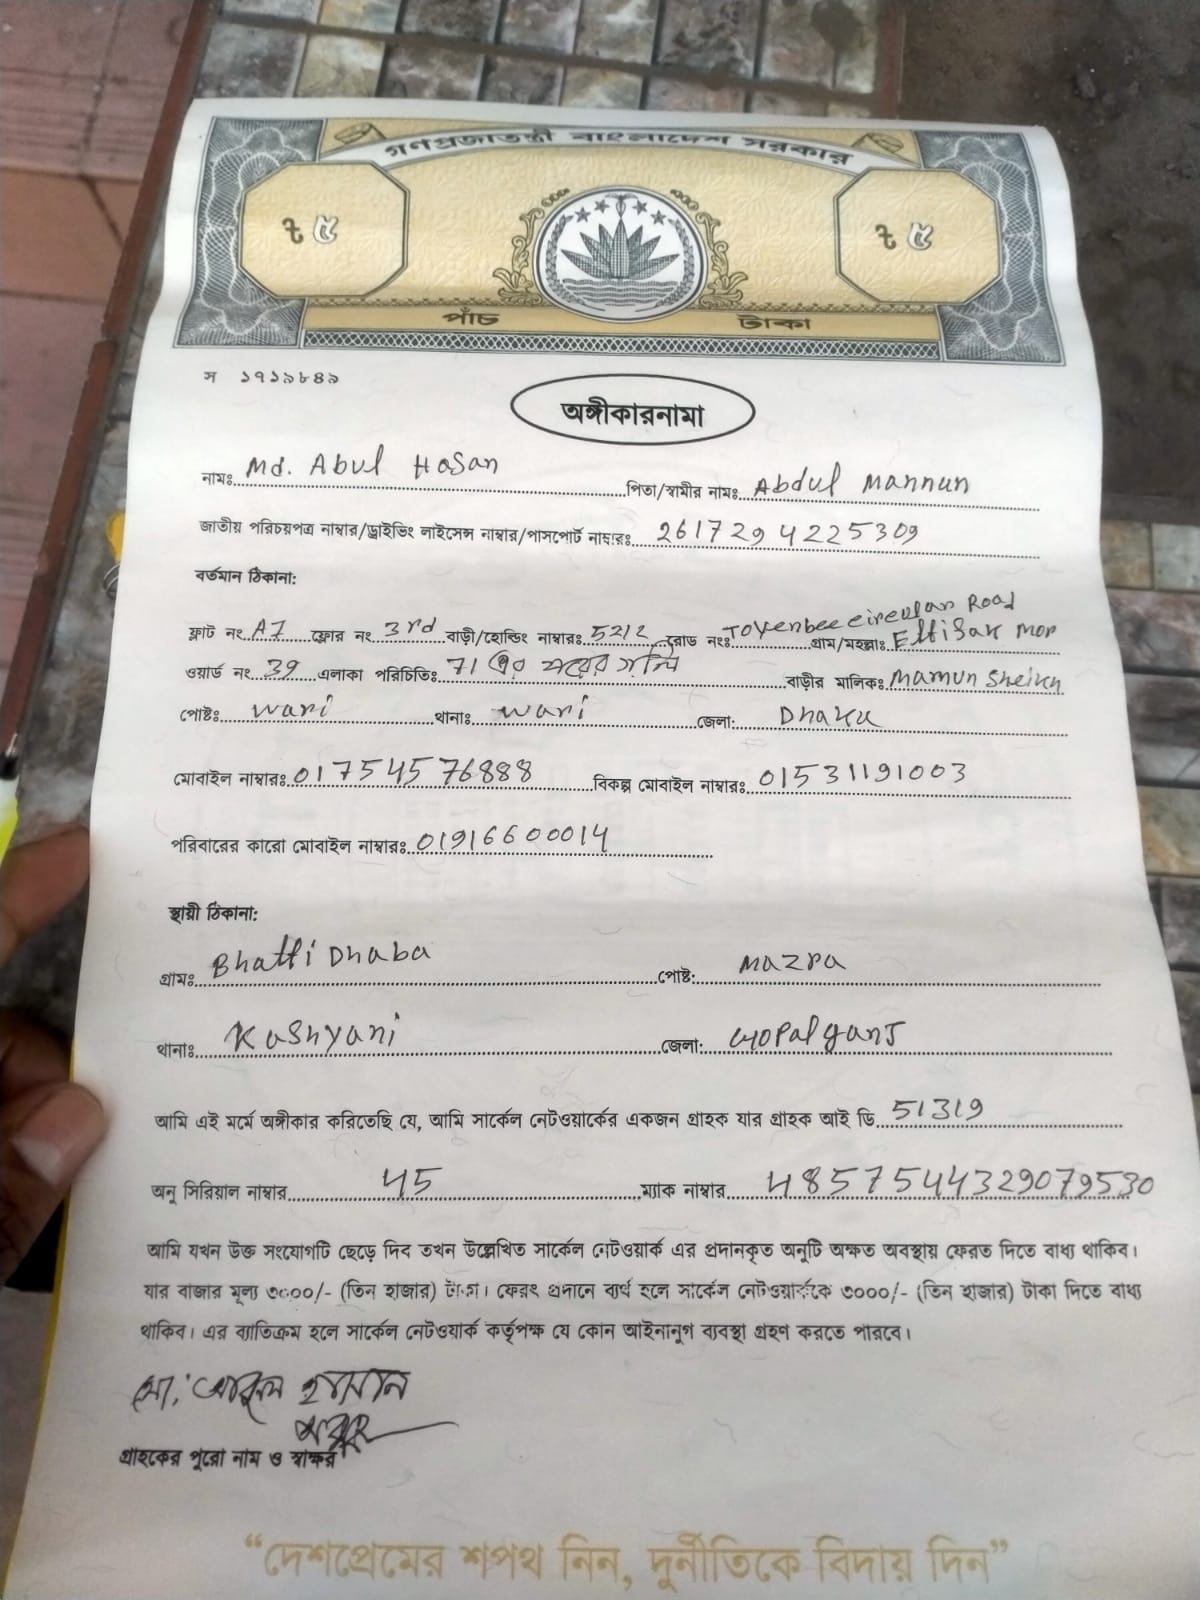 গণপ্রজাতন্ত্রী বাংলাদেশ সরকার
৳ ৫ ৳ ৫
পাঁচ টাকা
স ১৭১৯৮৪৯
অঙ্গীকারনামা
নামঃ Md. Abul Hasan পিতা/স্বামীর নামঃ Abdul Mannun
জাতীয় পরিচয়পত্র নাম্বার/ড্রাইভিং লাইসেন্স নাম্বার/পাসপোর্ট নাম্বারঃ 2617294225309
বর্তমান ঠিকানা:
ফ্লাট নং A7 ফ্লোর নং 3rd বাড়ী/হোল্ডিং নাম্বারঃ 52/2 রোড নংঃ Toyenbee circular Road গ্রাম/মহল্লাঃ Ettisak Mor
ওয়ার্ড নং 39 এলাকা পরিচিতিঃ 71 এর পরের গলি বাড়ীর মালিকঃ Mamun Sheikh
পোষ্টঃ Wari থানাঃ Wari জেলা: Dhaka
মোবাইল নাম্বারঃ 01754576888 বিকল্প মোবাইল নাম্বারঃ 01531191003
পরিবারের কারো মোবাইল নাম্বারঃ 01916600014
স্থায়ী ঠিকানা:
গ্রামঃ Bhatti Dhaba পোষ্ট: Mazra
থানাঃ Kashyani জেলা: Gopalganj
আমি এই মর্মে অঙ্গীকার করিতেছি যে, আমি সার্কেল নেটওয়ার্কের একজন গ্রাহক যার গ্রাহক আই ডি 51319
অনু সিরিয়াল নাম্বার 45 ম্যাক নাম্বার 4857544329079530
আমি যখন উক্ত সংযোগটি ছেড়ে দিব তখন উল্লেখিত সার্কেল নেটওয়ার্ক এর প্রদানকৃত অনুটি অক্ষত অবস্থায় ফেরত দিতে বাধ্য থাকিব।
যার বাজার মূল্য ৩০০০/- (তিন হাজার) টাকা। ফেরৎ প্রদানে ব্যর্থ হলে সার্কেল নেটওয়ার্ককে ৩০০০/- (তিন হাজার) টাকা দিতে বাধ্য
থাকিব। এর ব্যাতিক্রম হলে সার্কেল নেটওয়ার্ক কর্তৃপক্ষ যে কোন আইনানুগ ব্যবস্থা গ্রহণ করতে পারবে।
মো: আবুল হাসান
গ্রাহকের পুরো নাম ও স্বাক্ষর
“দেশপ্রেমের শপথ নিন, দুর্নীতিকে বিদায় দিন”